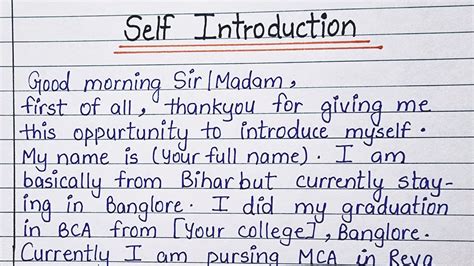 Self Introduction
Good morning Sir/Madam,
first of all, thankyou for giving me
this oppurtunity to introduce myself.
My name is (Your full name). I am
basically from Bihar but currently stay-
ing in Banglore. I did my graduation
in BCA from [Your college], Banglore.
Currently I am pursing MCA in Reva